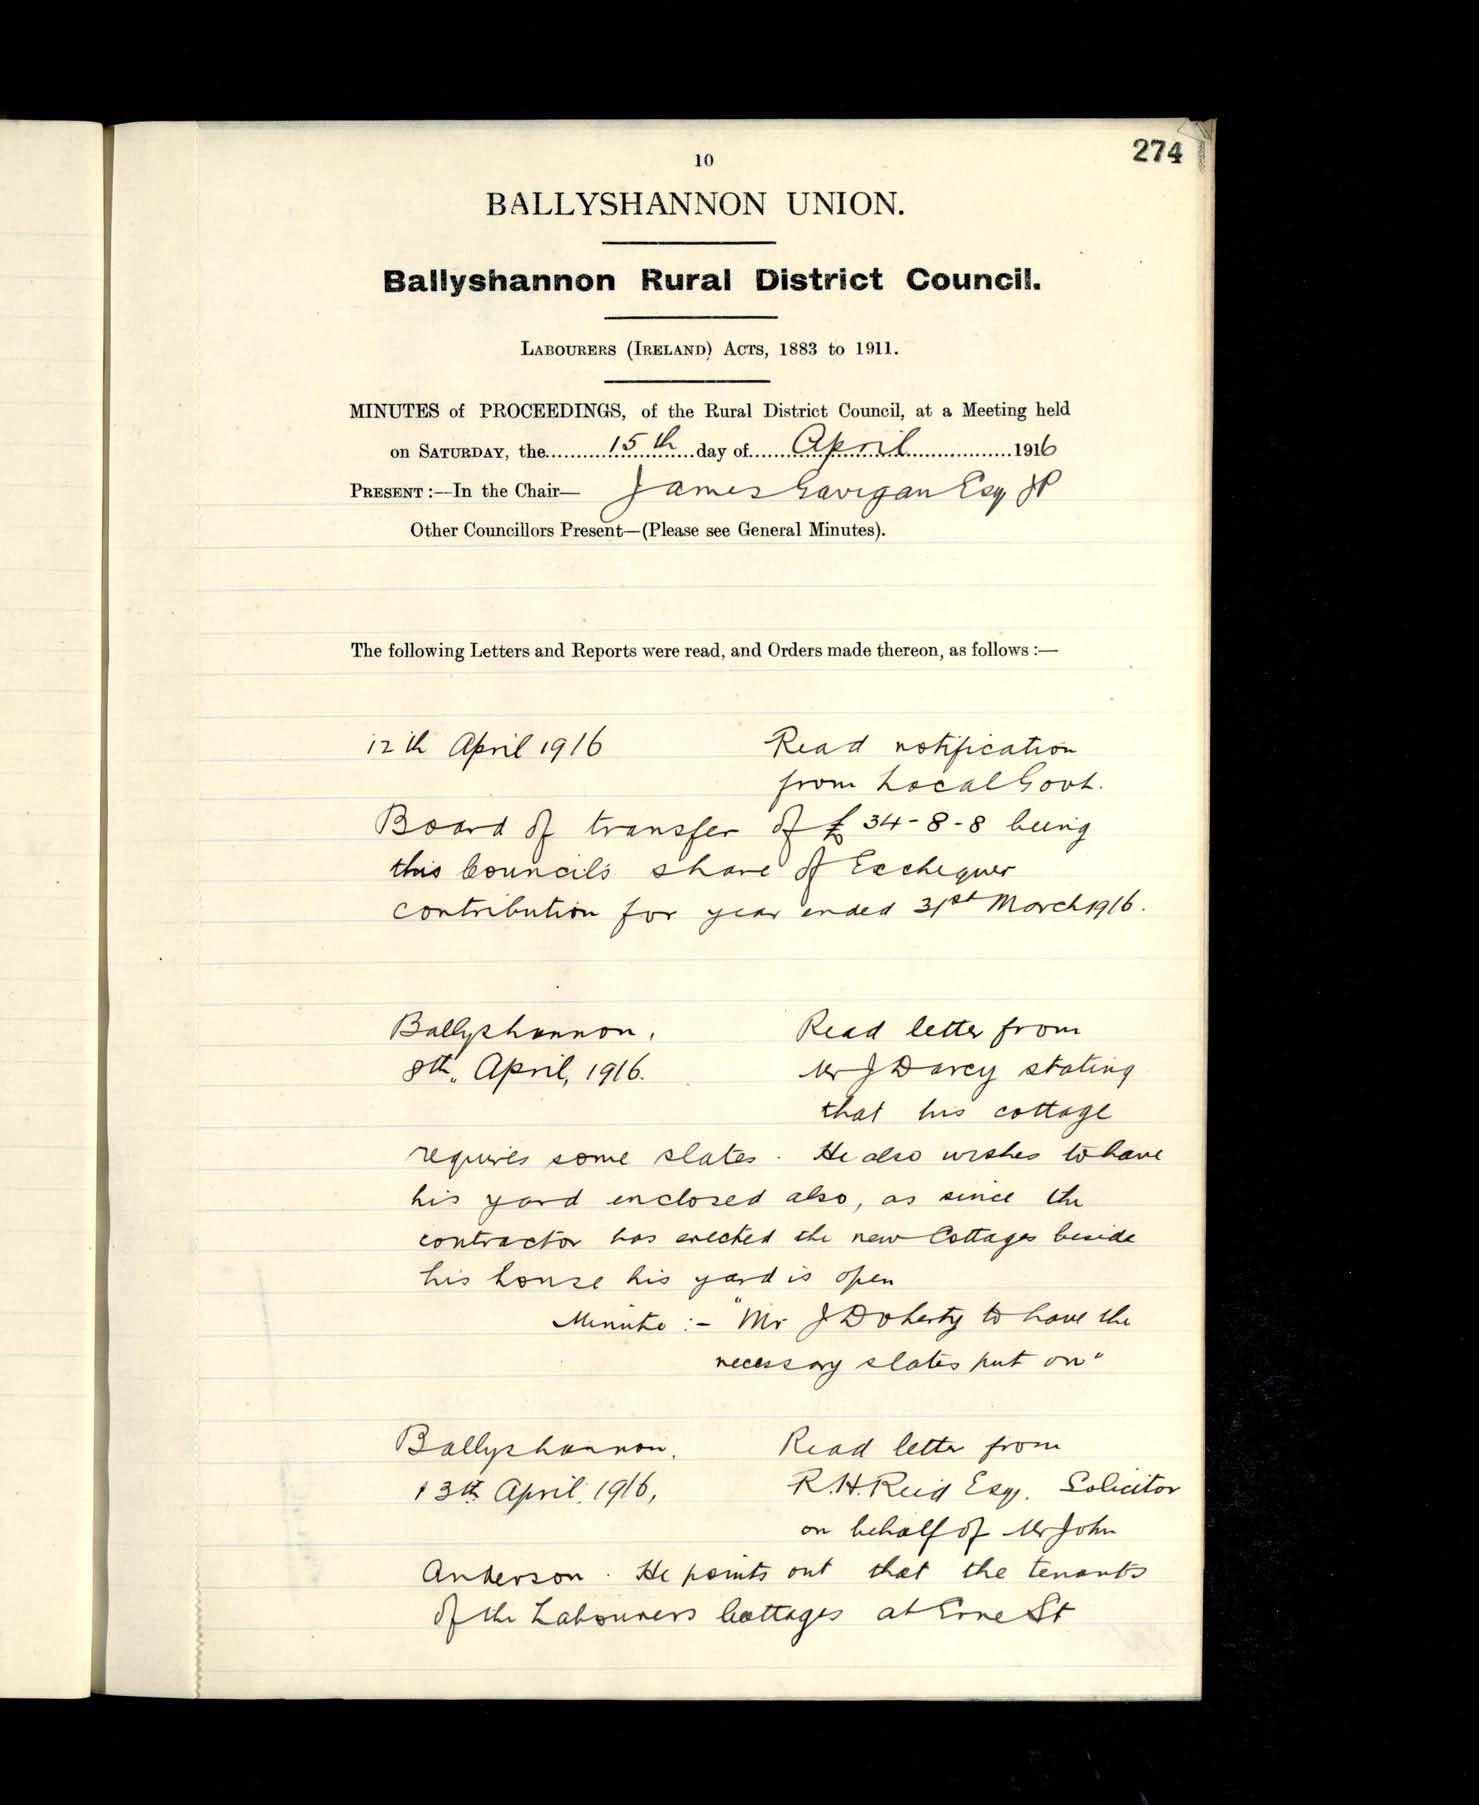 274
10
BALLYSHANNON UNION.
Ballyshannon Rural District Council.
LABOURERS (IRELAND) ACTS, 1883 to 1911.
MINUTES of PROCEEDINGS, of the Rural District Council, at a Meeting held
on SATURDAY, the 15th day of April 1916
PRESENT:—In the Chair— James Gavigan Esq JP
Other Councillors Present—(Please see General Minutes).
The following Letters and Reports were read, and Orders made thereon, as follows:—
12th April 1916 Read notification
from Local Govt.
Board of transfer of £34-8-8 being
this Council's share of Exchequer
contribution for year ended 31st March 1916.
Ballyshannon. Read letter from
8th. April, 1916. Mr J Darcy stating
that his cottage
requires some slates. He also wishes to have
his yard enclosed also, as since the
contractor has erected the new Cottages beside
his house his yard is open
Minute:- "Mr J Doherty to have the
necessary slates put on"
Ballyshannon. Read letter from
13th April, 1916, R.H. Reid Esq. Solicitor
on behalf of Mr John
Anderson. He points out that the tenants
of the Labourers Cottages at Erne St